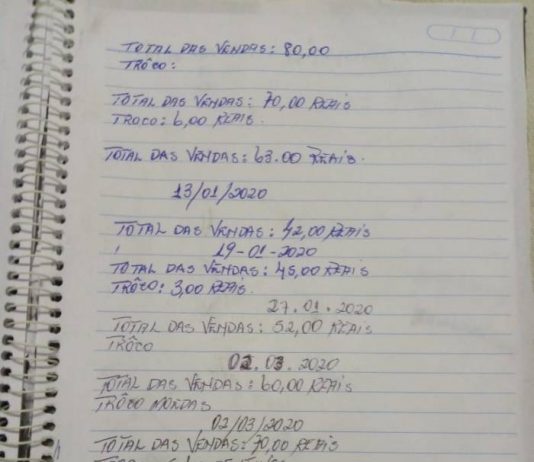 TOTAL DAS VENDAS: 80,00
TRÔCO:
TOTAL DAS VENDAS: 70,00 REAIS
TROCO: 6,00 REAIS.
TOTAL DAS VENDAS: 63.00 REAIS.
13/01/2020
TOTAL DAS VENDAS: 42,00 REAIS
19-01-2020
TOTAL DAS VENDAS: 45,00 REAIS
TRÔCO: 3,00 REAIS.
27.01.2020
TOTAL DAS VENDAS: 52,00 REAIS
TRÔCO
02.03.2020
TOTAL DAS VENDAS: 60,00 REAIS
TRÔCO MOEDAS
02/03/2020
TOTAL DAS VENDAS: 70,00 REAIS